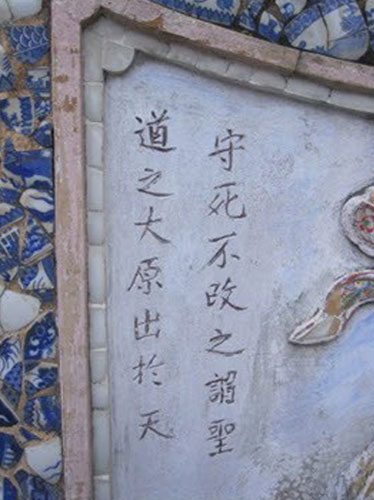 守死不改之謂聖
道之大原出於天